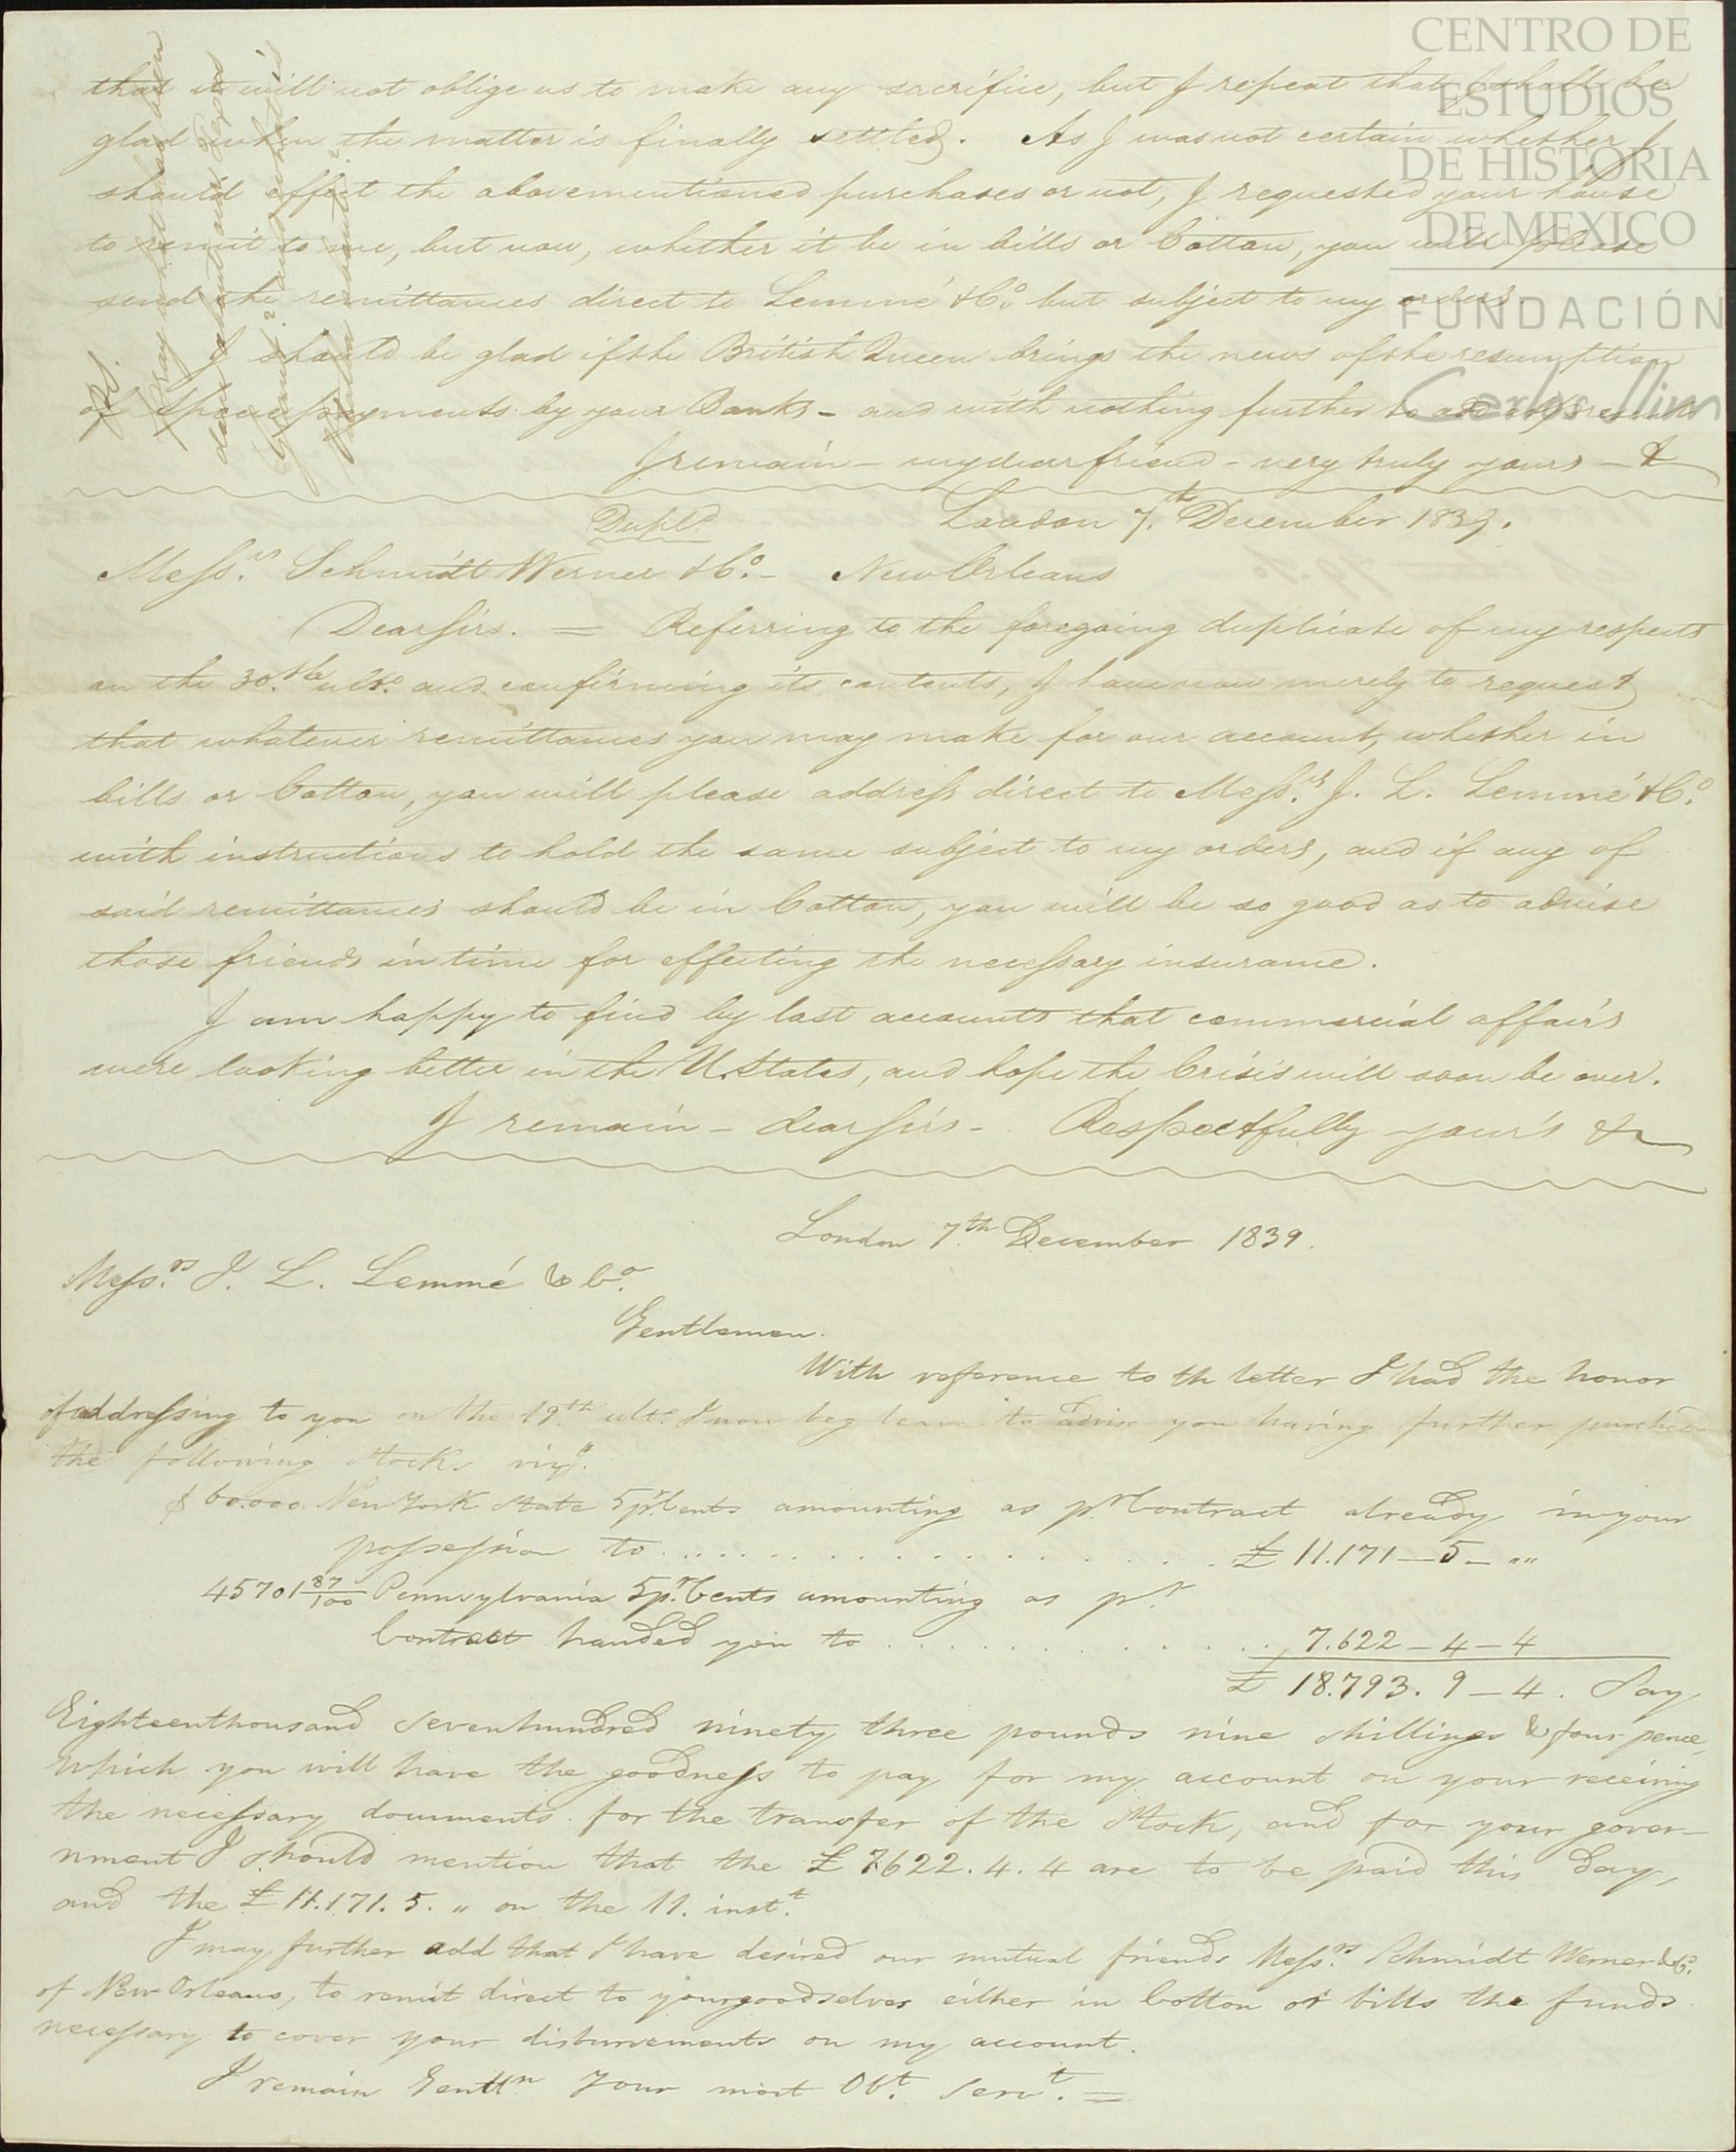 CENTRO DE
ESTUDIOS
DE HISTORIA
DE MEXICO
FUNDACIÓN
Carlos Slim
that it will not oblige us to make any sacrifice, but I repeat that I shall be
glad when the matter is finally settled. As I was not certain whether I
should effect the abovementioned purchases or not, I requested your house
to remit to me, but now, whether it be in bills or Cotton, you will please
send the remittances direct to Lemmé & Co. but subject to my orders.
I should be glad if the British Queen brings the news of the resumption
of Specie payments by your Banks - and with nothing further to add at present
I remain - my dear friend - very truly yours - &
Dupld
London 7th December 1839.
Messrs. Schmidt Werner & Co. - New Orleans
Dear Sirs. = Referring to the foregoing duplicate of my respects
on the 30th ulto. and confirming its contents, I have now merely to request
that whatever remittances you may make for our account, whether in
bills or Cotton, you will please address direct to Messrs. J. L. Lemmé & Co.
with instructions to hold the same subject to my orders, and if any of
said remittances should be in Cotton, you will be so good as to advise
those friends in time for effecting the necessary insurance.
I am happy to find by last accounts that commercial affairs
were looking better in the U. States, and hope the Crisis will soon be over.
I remain - dear Sirs - Respectfully your's &
London 7th December 1839.
Messrs. J. L. Lemmé & Co.
Gentlemen.
With reference to th letter I had the honor
of addressing to you on the 19th ulto. I now beg leave to advise you having further
the following Stocks viz.
$ 60.000. New York State 5 pr. Cents amounting as pr. Contract already in your
possession to . . . . . . . . . . . . . £ 11.171 — 5 — "
45701 87/100 Pennsylvania 5 pr. Cents amounting as pr.
Contract handed you to . . . . . . . . . . . 7.622 — 4 — 4
£ 18.793. 9 — 4. Say
Eighteenthousand sevenhundred ninety three pounds nine shillings & four pence,
which you will have the goodness to pay for my account on your receiving
the necessary documents for the transfer of the Stock, and for your gover-
nment I should mention that the £ 7622. 4. 4 are to be paid this day,
and the £ 11.171. 5. " on the 11. inst.
I may further add that I have desired our mutual friends Messrs. Schmidt Werner & Co.
of New Orleans, to remit direct to yourgoodselves either in Cotton or bills the funds
necessary to cover your disbursements on my account.
I remain Gentln Your most Obt. Servt. =